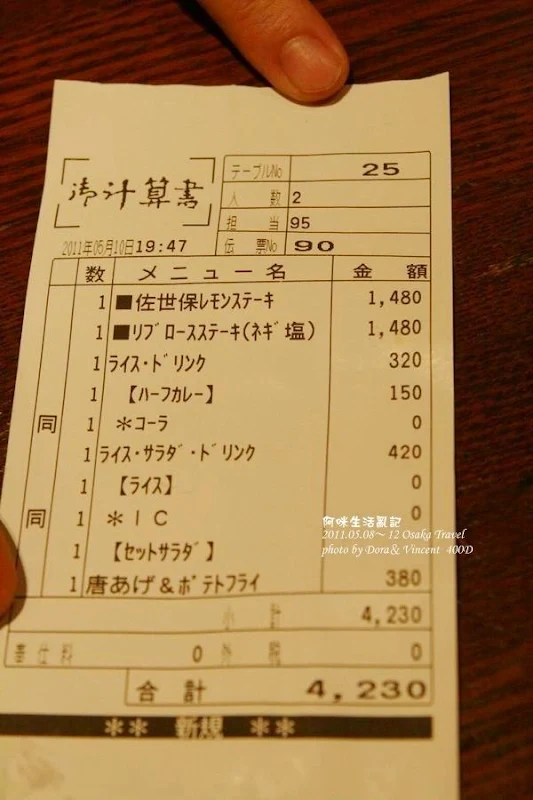 御計算書
テーブルNo 25
人 数 2
担 当 95
2011年05月10日19:47 伝 票No 90
数 メニュー名 金 額
1 ■佐世保レモンステーキ 1,480
1 ■リブロースステーキ(ネギ塩) 1,480
1 ライス・ドリンク 320
1 【ハーフカレー】 150
同 1 *コーラ 0
1 ライス・サラダ・ドリンク 420
1 【ライス】 0
同 1 *IC 0
1 【セットサラダ】
1 唐あげ&ポテトフライ 380
小 計 4,230
奉仕料 0 外 税 0
合 計 4,230
** 新規 **
阿咪生活亂記
2011.05.08~ 12 Osaka Travel
photo by Dora & Vincent 400D